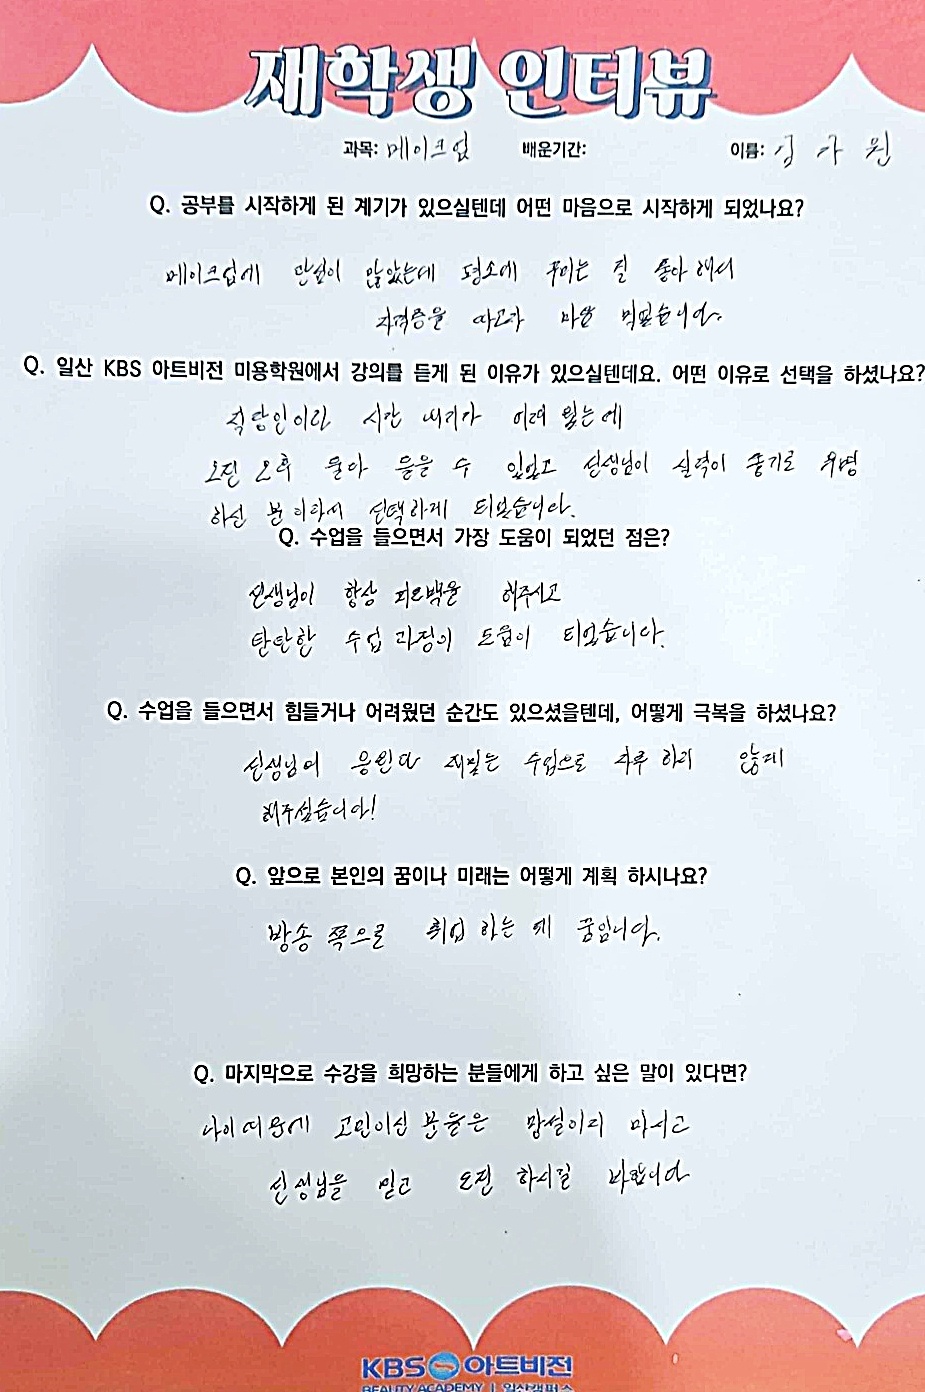 재학생 인터뷰
과목: 메이크업 배운기간: 이름:
Q. 공부를 시작하게 된 계기가 있으실텐데 어떤 마음으로 시작하게 되었나요?
메이크업에 관심이 많았는데 평소에 꾸미는 걸 좋아해서
자격증을 따고자 마음 먹었습니다.
Q. 일산 KBS 아트비전 미용학원에서 강의를 듣게 된 이유가 있으실텐데요. 어떤 이유로 선택을 하셨나요?
직장인이라 시간 내기가 어려웠는데
오전 오후 몰아 들을 수 있었고 선생님이 실력이 좋기로 유명
하신 분이라서 선택하게 되었습니다.
Q. 수업을 들으면서 가장 도움이 되었던 점은?
선생님이 항상 피드백을 해주시고
탄탄한 수업 과정이 도움이 되었습니다.
Q. 수업을 들으면서 힘들거나 어려웠던 순간도 있으셨을텐데, 어떻게 극복을 하셨나요?
선생님이 응원과 재밌는 수업으로 지루하지 않게
해주셨습니다!
Q. 앞으로 본인의 꿈이나 미래는 어떻게 계획 하시나요?
방송 쪽으로 취업 하는 게 꿈입니다.
Q. 마지막으로 수강을 희망하는 분들에게 하고 싶은 말이 있다면?
나이때문에 고민이신 분들은 망설이지 마시고
선생님을 믿고 도전 하시길 바랍니다
KBS 아트비전
BEAUTY ACADEMY | 일산캠퍼스